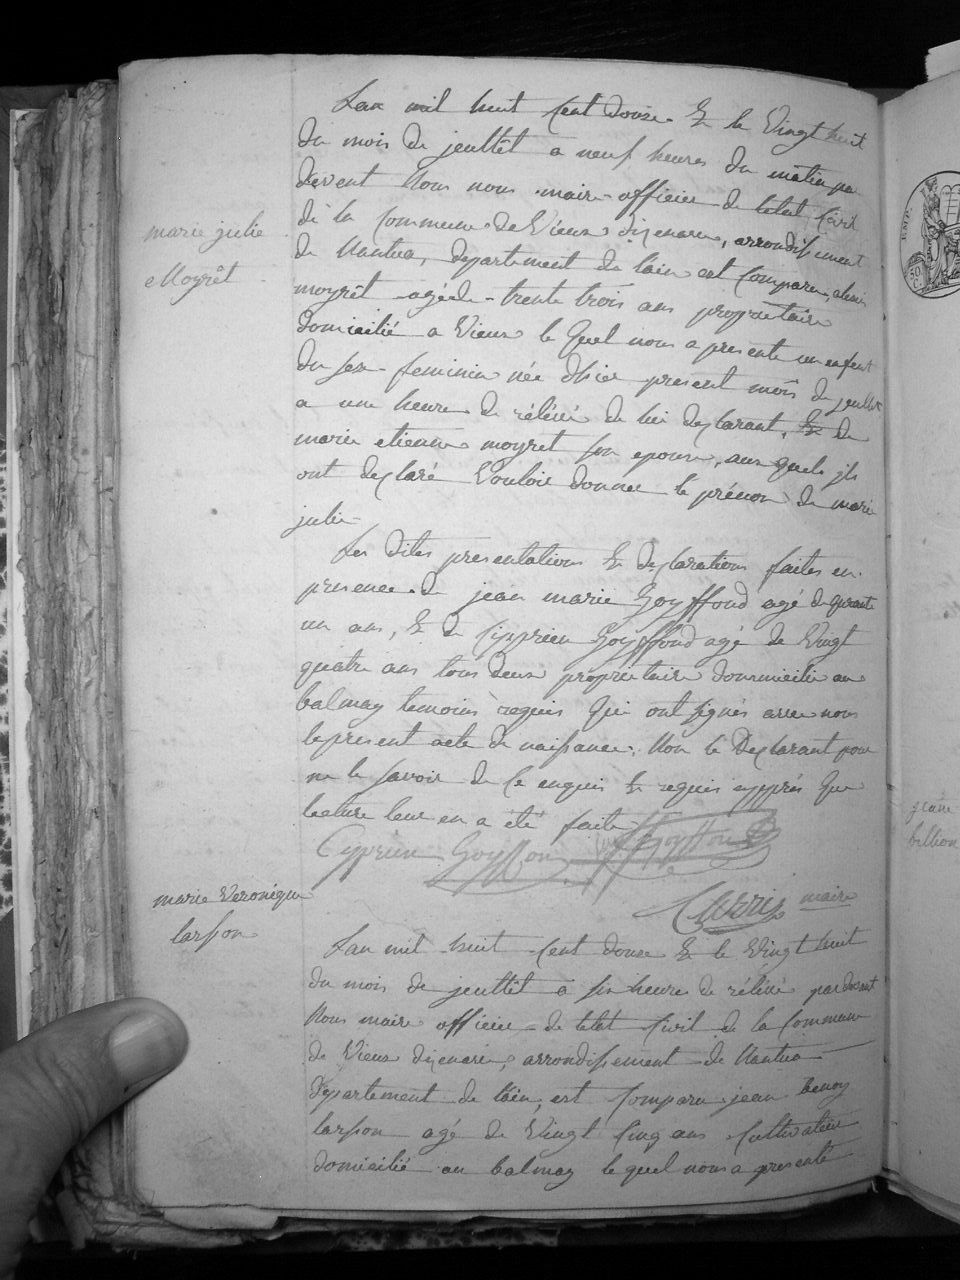 Lan mil huit Cent douze & le Vingt huit
du mois de jeullêt a neuf heures du matin par
devent Nous nous maire officier de letat Civil
de la Commune de Vieux dizenave, arrondissement
marie julie
de Nantua, departement de lain est Comparu
Moyrêt
moyrêt agé de trente trois ans proprietaire
domicilié a Vieux le quel nous a presente un enfent
du sex feminin née d'hier present mois de jeullet
a une heure de rélévé de lui declarant, & de
marie etienne moyret son epouse, aux quels jls
ont declaré Vouloir donner le prénon de marie
julie
Les dites presentations & declarations faites en
presence de jean marie Goyffond agé de qurante
un ans, & de Cypprien Goyffond agé de Vingt
quatre ans tous deux proprietaire doumicilie au
balmay temoins requis Qui ont signés avec nous
le present acte de naissance, Non le Declarant pour
ne le savoir de ce enquis & requis appprés Que
lecture leur en a été faite
Cyprien Goyffon Goyffon
Carris maire
marie Veronique
larsson
Lan mil huit Cent douze & le Vingt huit
du mois de jeullêt a six heure de rélévé pardevant
Nous maire officier de letat Civil de la Commune
de Vieux dizenave, arrondissement de Nantua
departement de lain, est Comparu jean benoy
larsson agé de Vingt Cinq ans Cultivateur
domicilié au balmay le quel nous a presenté
EMP.
50 C.
jeane
billion